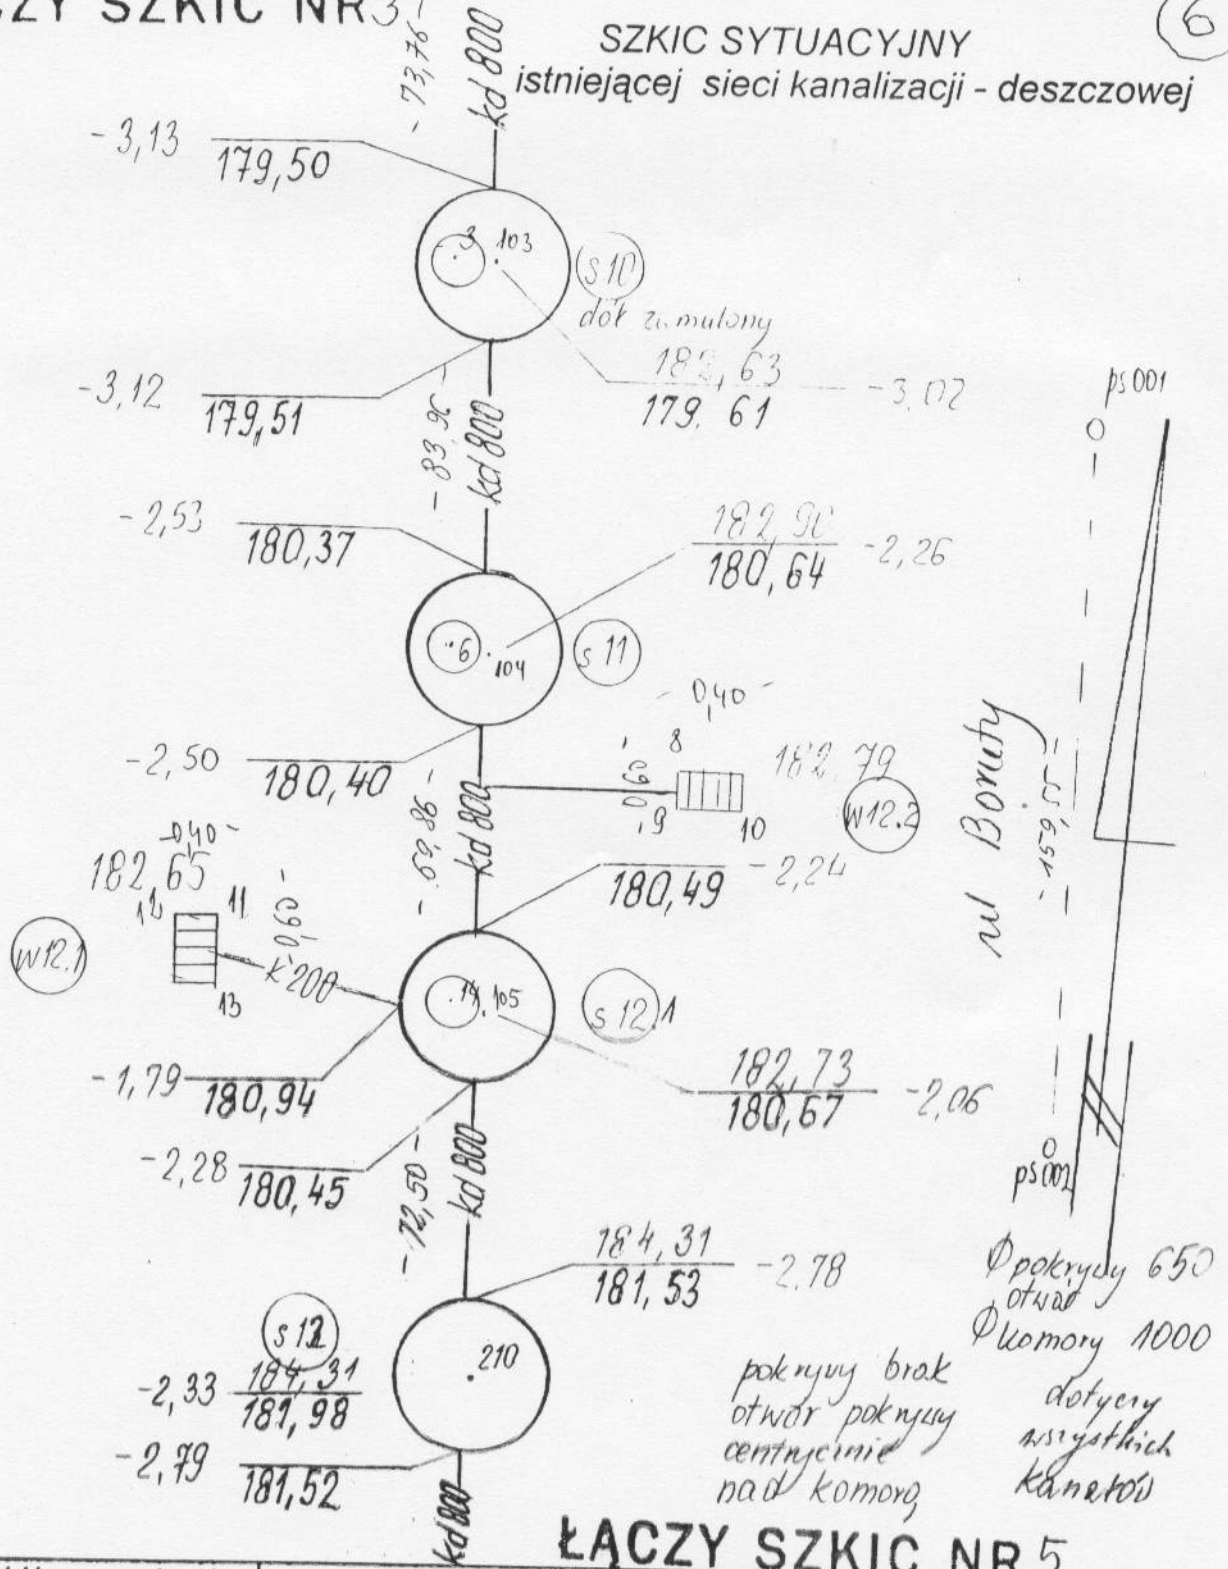 ŁĄCZY SZKIC NR 3
6
SZKIC SYTUACYJNY
istniejącej sieci kanalizacji - deszczowej
- 73,76 -
kd 800
- 3,13
179,50
3
103
s 10
dół zamulony
182,63
179.61
- 3,02
- 3,12
179,51
- 83,96 -
kd 800
ps 001
- 2,53
180,37
182,90
180,64
- 2,26
6
104
s 11
- 0,40 -
- 2,50
180,40
8
- 0,60 -
9
10
182,79
w12.2
- 69,86 -
kd 800
180,49
- 2,24
ul Boruty
- 159,55 -
- 0,40 -
182,65
12
11
- 0,60 -
w12.1
k 200
13
14
105
s 12.1
- 1,79
180,94
182,73
180,67
- 2,06
- 2,28
180,45
- 72,50 -
kd 800
ps 002
184,31
181,53
- 2,78
s 12
210
- 2,33
184,31
181,98
- 2,79
181,52
kd 800
Φ pokrywy 650
otwór
Φ komory 1000
dotyczy
wszystkich
kanałów
pokrywy brak
otwór pokrywy
centrycznie
nad komorą
ŁĄCZY SZKIC NR 5